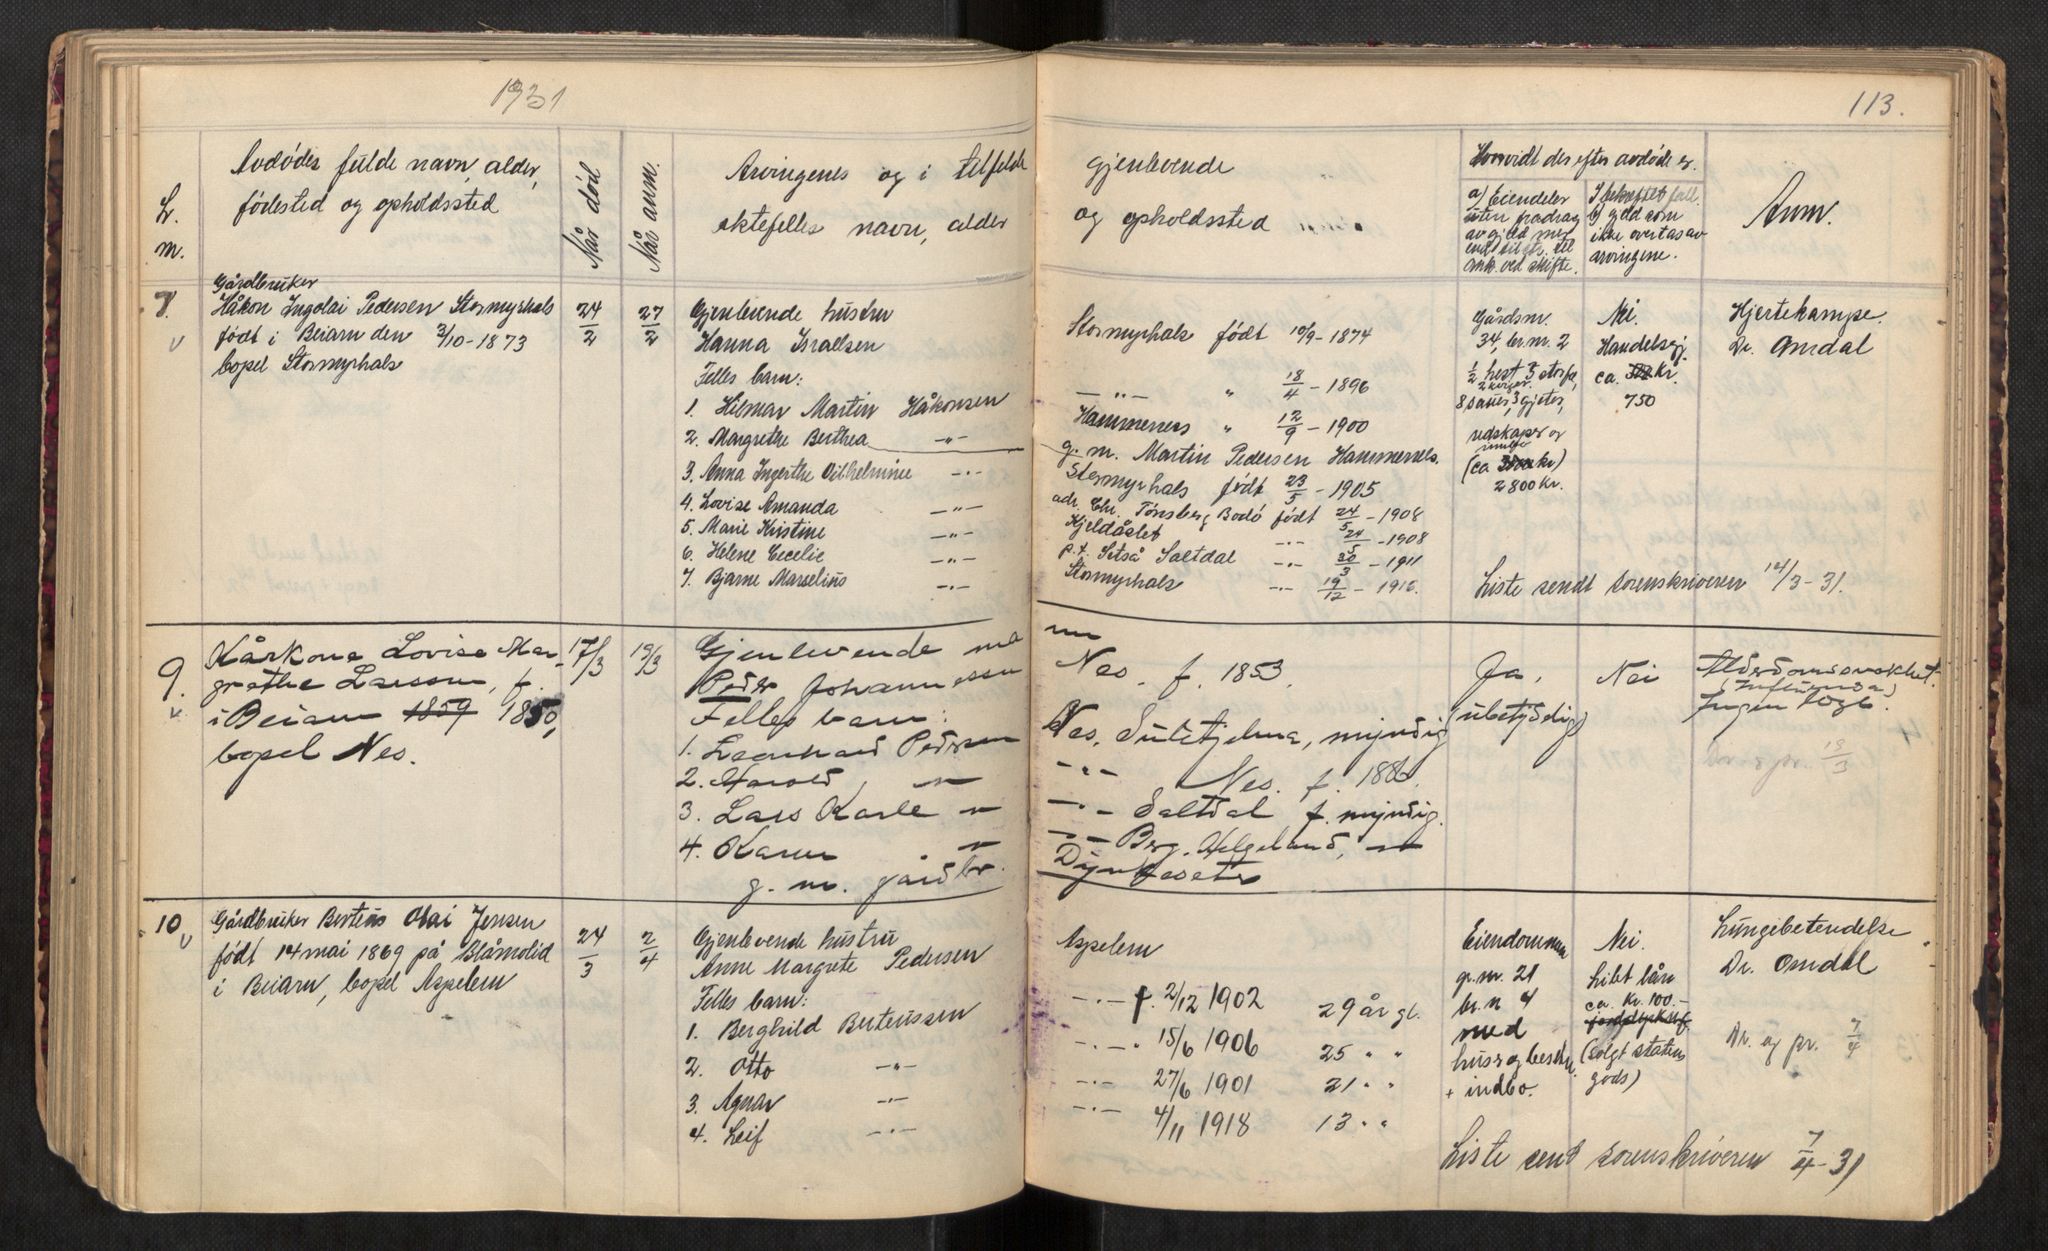 1931
113.
L.
m.
Avdødes fulde navn, alder,
fødested og opholdssted
Når død
Når anm.
Arvingenes og i tilfelde
ektefelles navn, alder
gjenlevende
og opholdssted
Hvorvidt der efter avdøde er
a) Eiendeler
uten fradrag
av gjeld
ved skifte.
I bekreftet fall.
b) gjeld som
ikke overtas av
arvingene.
Anm.
Gårdbruker
Håkon Ingolai Pedersen Stormyrhals
født i Beiarn den 3/10-1873
bopel Stormyrhals
24/2
27/2
Gjenlevende hustru
Hanna Israelsen
Felles barn:
1. Hilmar Martin Håkonsen
2. Margrethe Berthea -"-
3. Anna Ingerthe Vilhelmine -"-
4. Lovise Amanda -"-
5. Marie Kristine -"-
6. Helene Cecelie -"-
7. Bjarne Marselius -"-
Stormyrhals født 10/9-1874
-"- " 18/4-1896
Hammernes " 12/9-1900
g. m. Martin Pedersen Hammernes.
Stormyrhals født 23/5-1905
adr. Chr. Tønsberg Bodø født 24/5-1908
Kjeldåslet -"- 24/5-1908
p.t. Setså Saltdal -"- 30/3-1911
Stormyrhals -"- 19/12-1916.
Gårdsm.
34, br. nr. 2
1/2 hest 3 storfe,
8 sauer, 3 gjeter,
redskaper og
innbo
(ca kr)
2800 kr.
Nei.
Handelsgj.
ca. kr.
750
Hjertekampe.
Dr. Omdal
Liste sendt sorenskriveren 14/3-31.
9.
Kårkone Lovise Mar-
grethe Larssen, f.
i Beiarn 1859 1850,
bopel Nes.
17/3
19/3
Gjenlevende ma
Peder Johannessen
Felles barn:
1. Leonhard Pedersen
2. Harold, -"-
3. Lars Karle -"-
4. Karen -"-
g. m. gårdbr.
nn
Nes, f. 1853.
Nes, Sulitjelma, myndig
-"- Nes. f. 1886.
-"- Saltdal f. myndig.
-"- Berg, Helgeland, -"-
Ja,
(ubetydelig)
Nei
Alderdomssvakhet.
(Influensa)
Ingen lege.
18/3
10
Gårdbruker Berteus Olai Jensen
født 14 mai 1869 på Blåmolid
i Beiarn, bopel Aspelem
24/3
2/4
Gjenlevende hustru
Anne Margrete Pedersen
Felles barn:
1. Berghild Berteussen
2. Otto -"-
3. Agnar -"-
4. Leif -"-
Aspelem
-"- f. 2/12 1902 29 år gl.
-"- " 15/6 1906 25 " "
-"- 27/6 1901 21 " "
-"- 4/11 1918 13 " "
Eiendommen
gr. nr. 21
br. n 4
med
huser og besetn.
+ indbo.
Nei.
Litet lån
ca. kr. 100.-
(solgt statens
gods)
Lungebetendelse
Dr. Omdal
Dr. og pr. 7/4
Liste sendt sorenskriveren 7/4-31